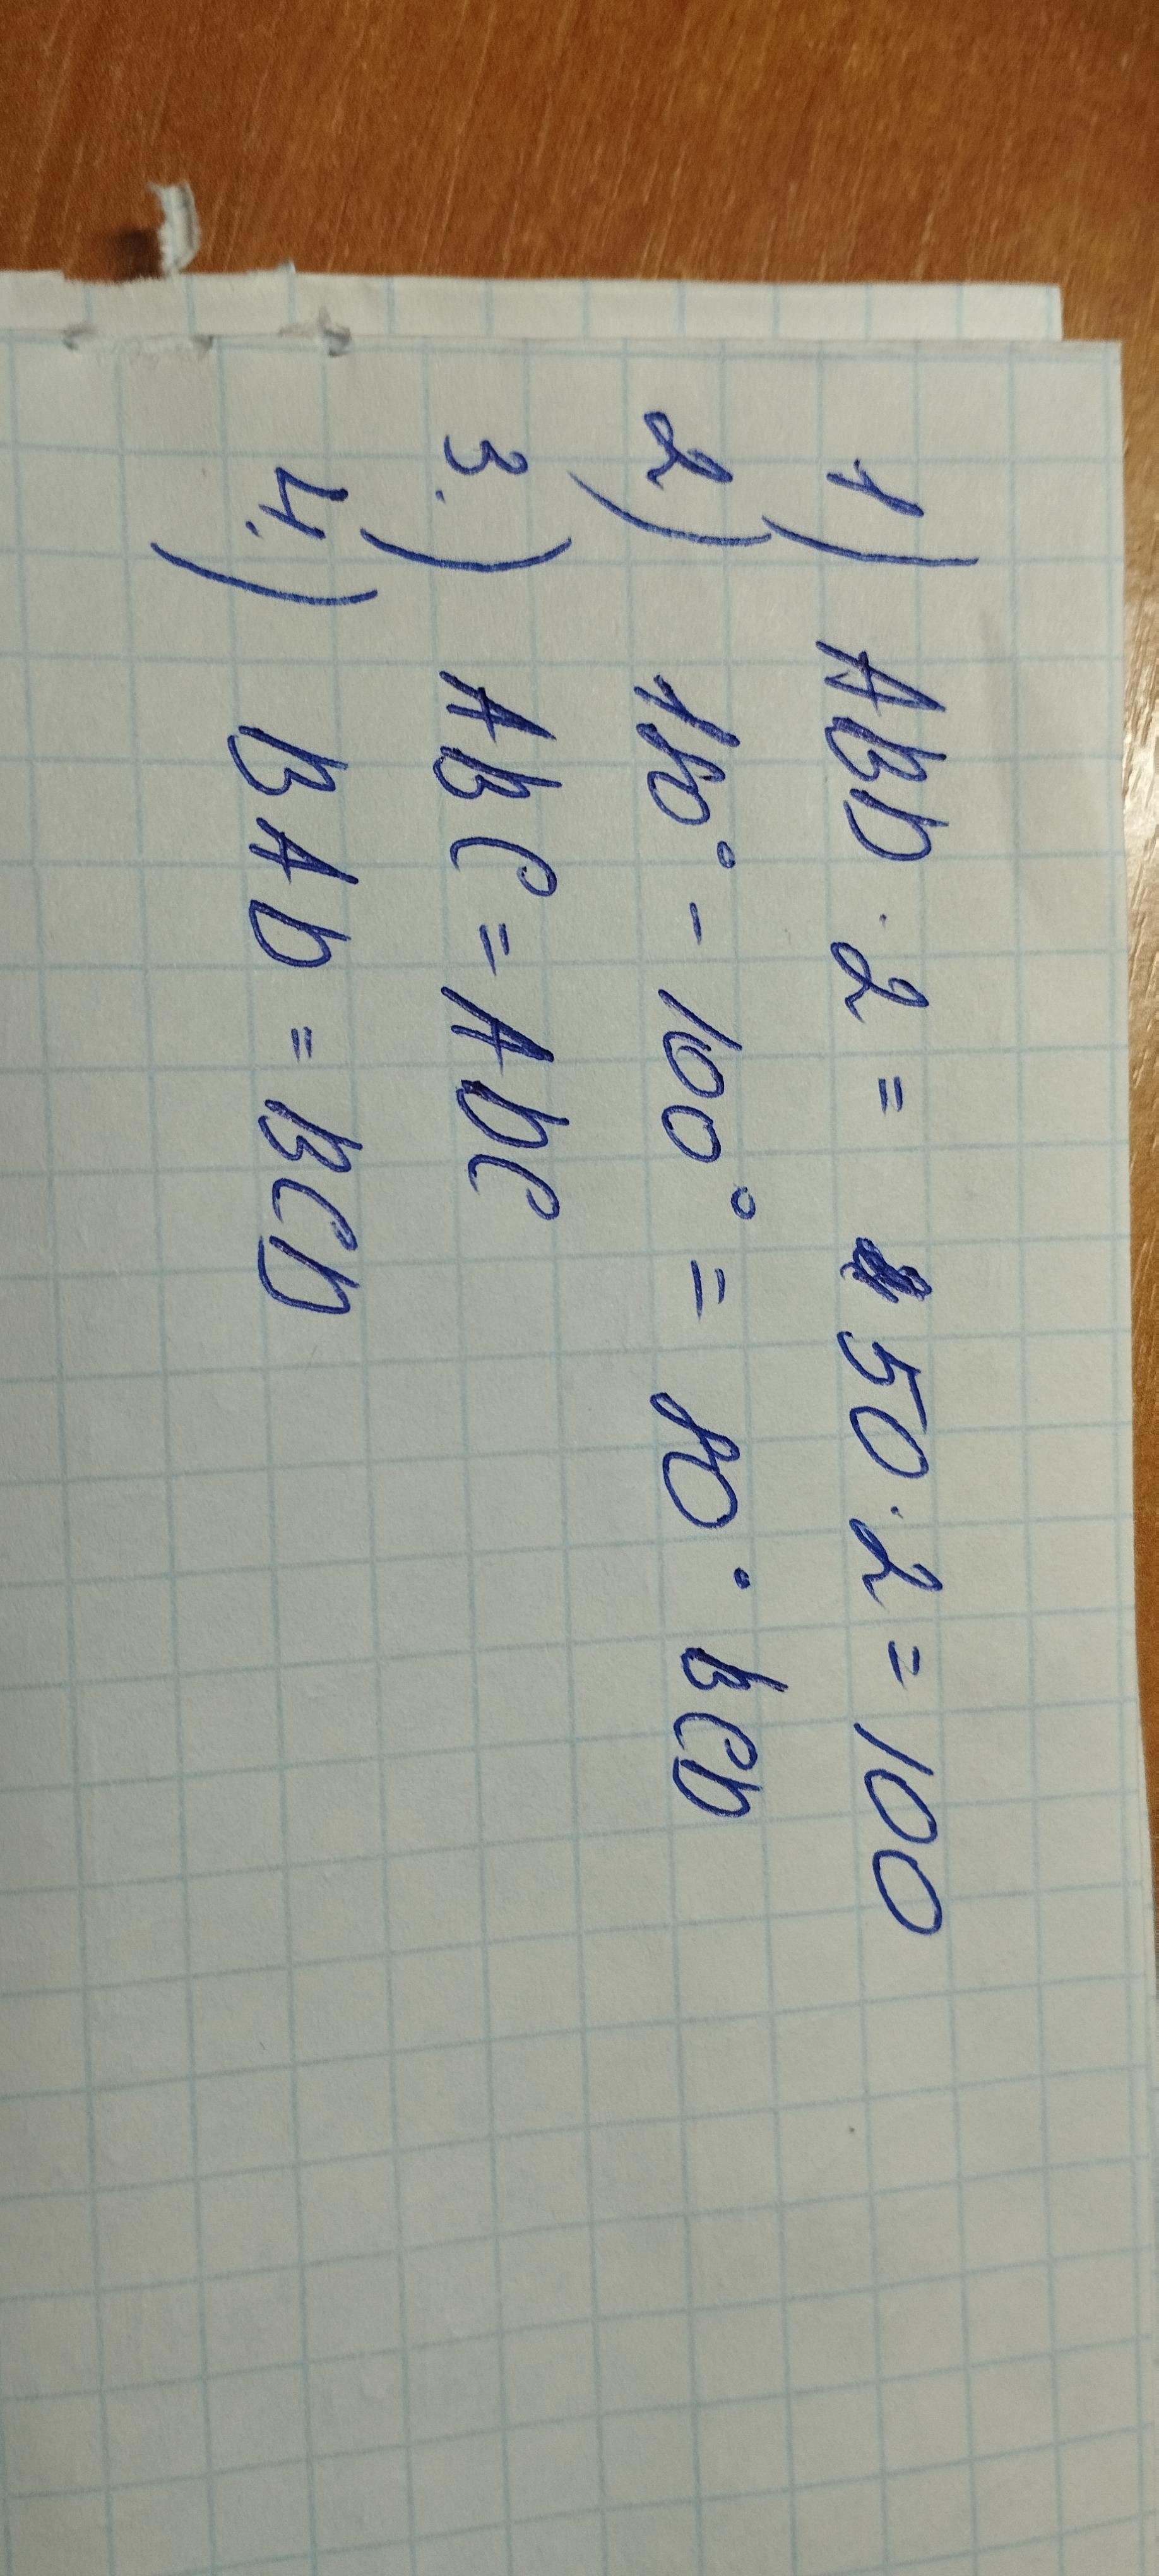 1) ABD · 2 = 50 · 2 = 100
2) 180° - 100° = 80° BCD
3.) ABC = ADC
4.) BAD = BCD